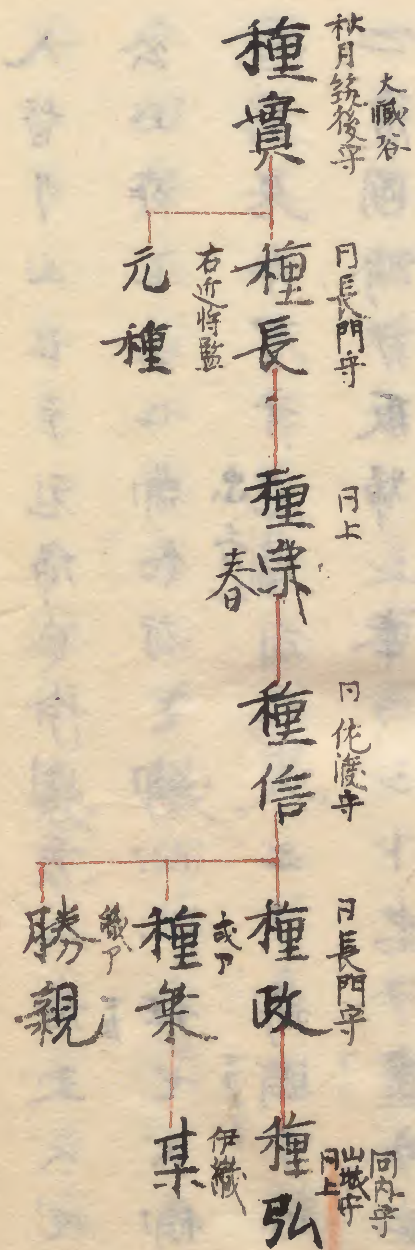 大藏谷
秋月筑後守
種實
同長門守
種長
右近将監
元種
同上
種
春
同佐渡守
種信
同長門守
種政
種
勝親
山城守
同上
種弘
伊織
某